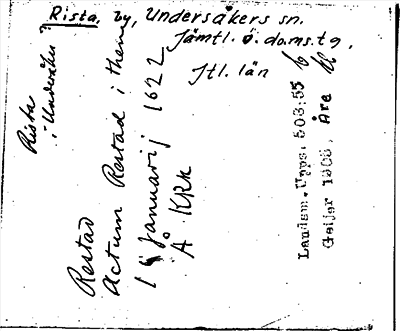 Rista, by, Undersåkers sn.
Jämtl. ö. doms. tg.
Jtl. län
Rista
i Undersåker
Restad
Actum Restad i them
1 Januarij 1622
Å KRA
Landsm. Upps. 503:55
Geijer 1908, Åre